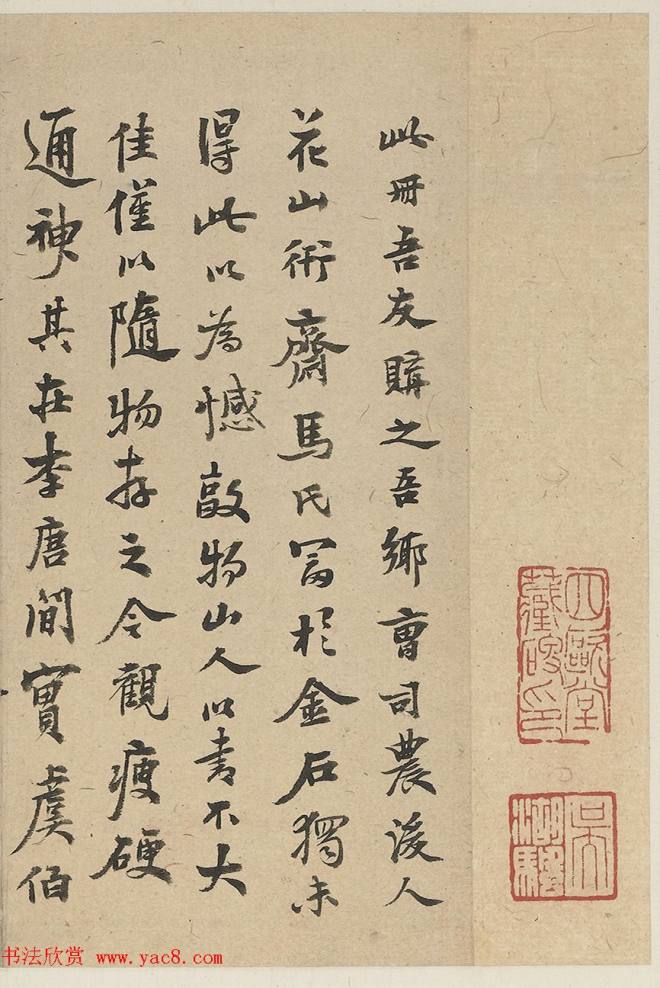 此冊吾友購之吾鄉曹司農後人
花山衎齋馬氏富於金石獨未
得此以為憾敲物山人以書不大
佳僅以隨物存之今觀瘦硬
通神其在李唐間實虞伯
四歐堂藏
吳湖帆
书法欣赏 www.yac8.com